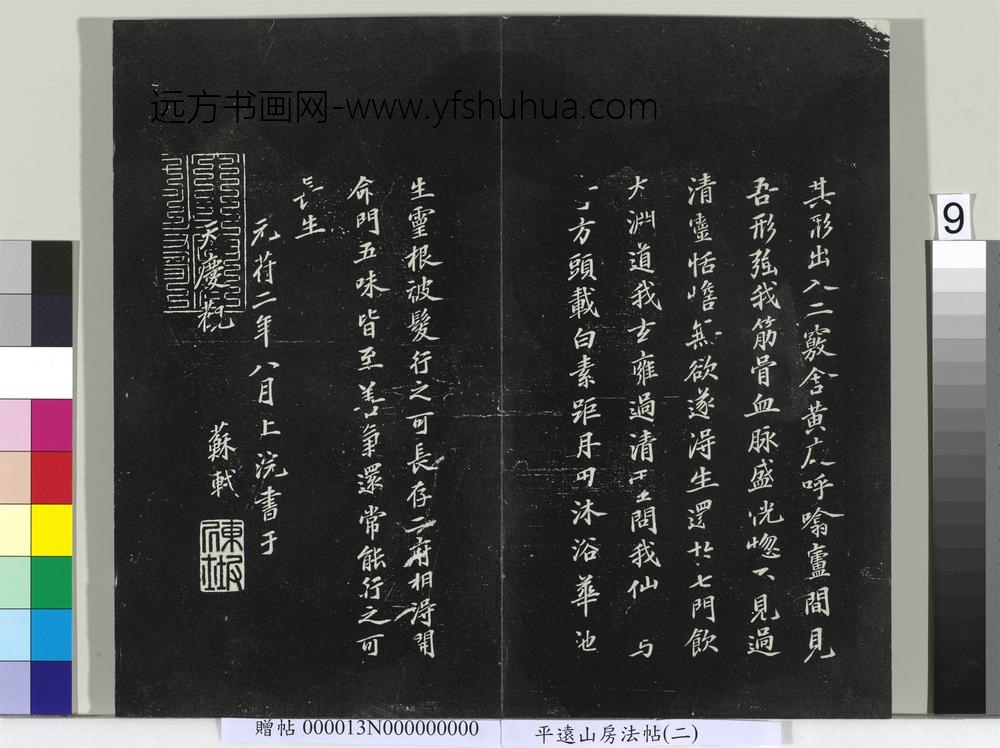 远方书画网-www.yfshuhua.com
其形出入二竅舍黃庭呼噏廬間見
吾形強我筋骨血脉盛恍惚不見過
清靈恬憺無欲遂得生還於七門飲
大淵道我玄雍過清靈問我仙 与
方頭載白素距丹田沐浴華池
生靈根被髮行之可長存二府相得開
命門五味皆至善氣還常能行之可
長生
元符二年八月上浣書于
天慶觀
蘇軾
東坡
9
贈帖 000013N000000000
平遠山房法帖(二)